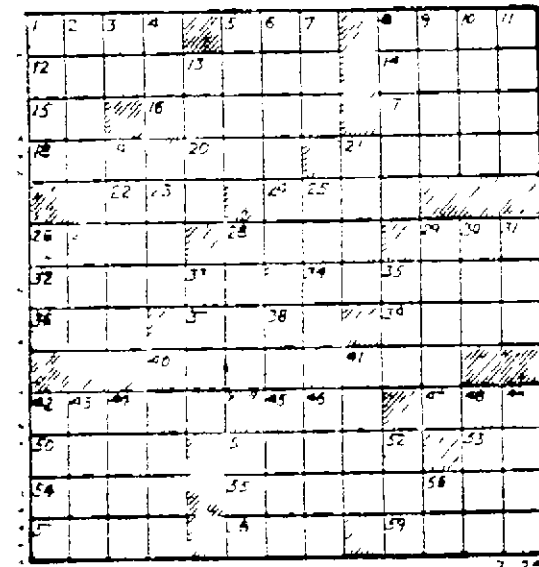 1 2 3 4 5 6 7 8 9 10 11
12 13 14
15 16
18 20 21
22 23 25
26 28 29 30 31
32 33 34 35
36 38 39
40 41
42 43 44 45 46 48
50 52 53
54 55 56
59